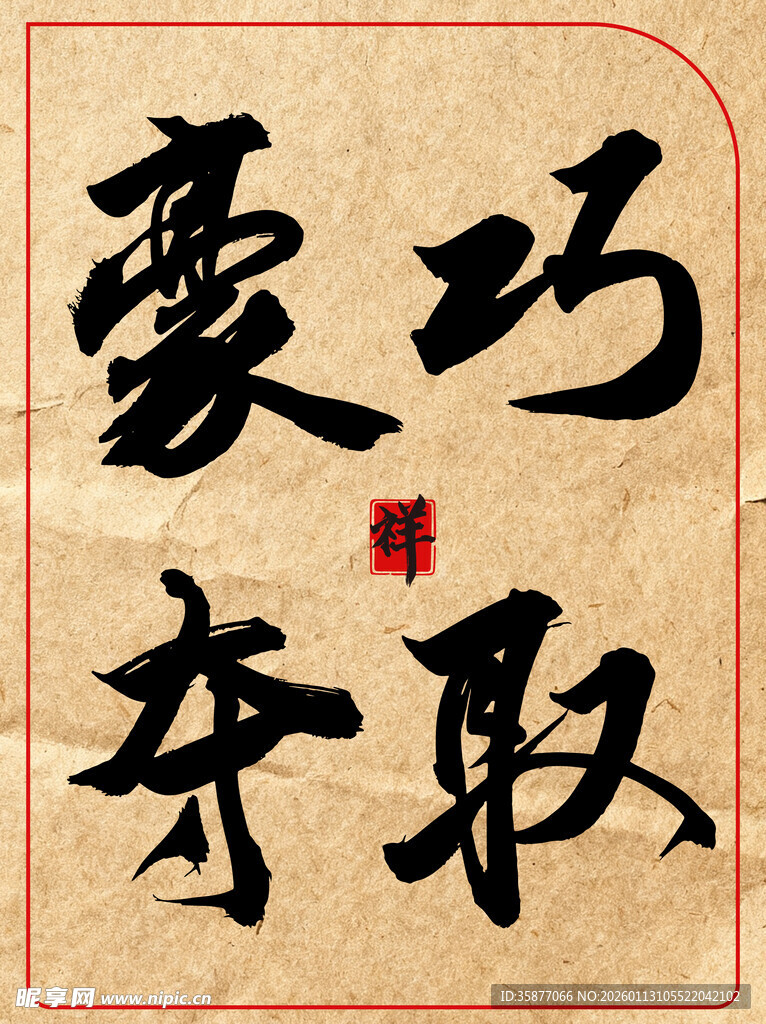 巧取
豪夺
祥
昵享网 www.nipic.cn
ID:35877066 NO:20260113105522042102